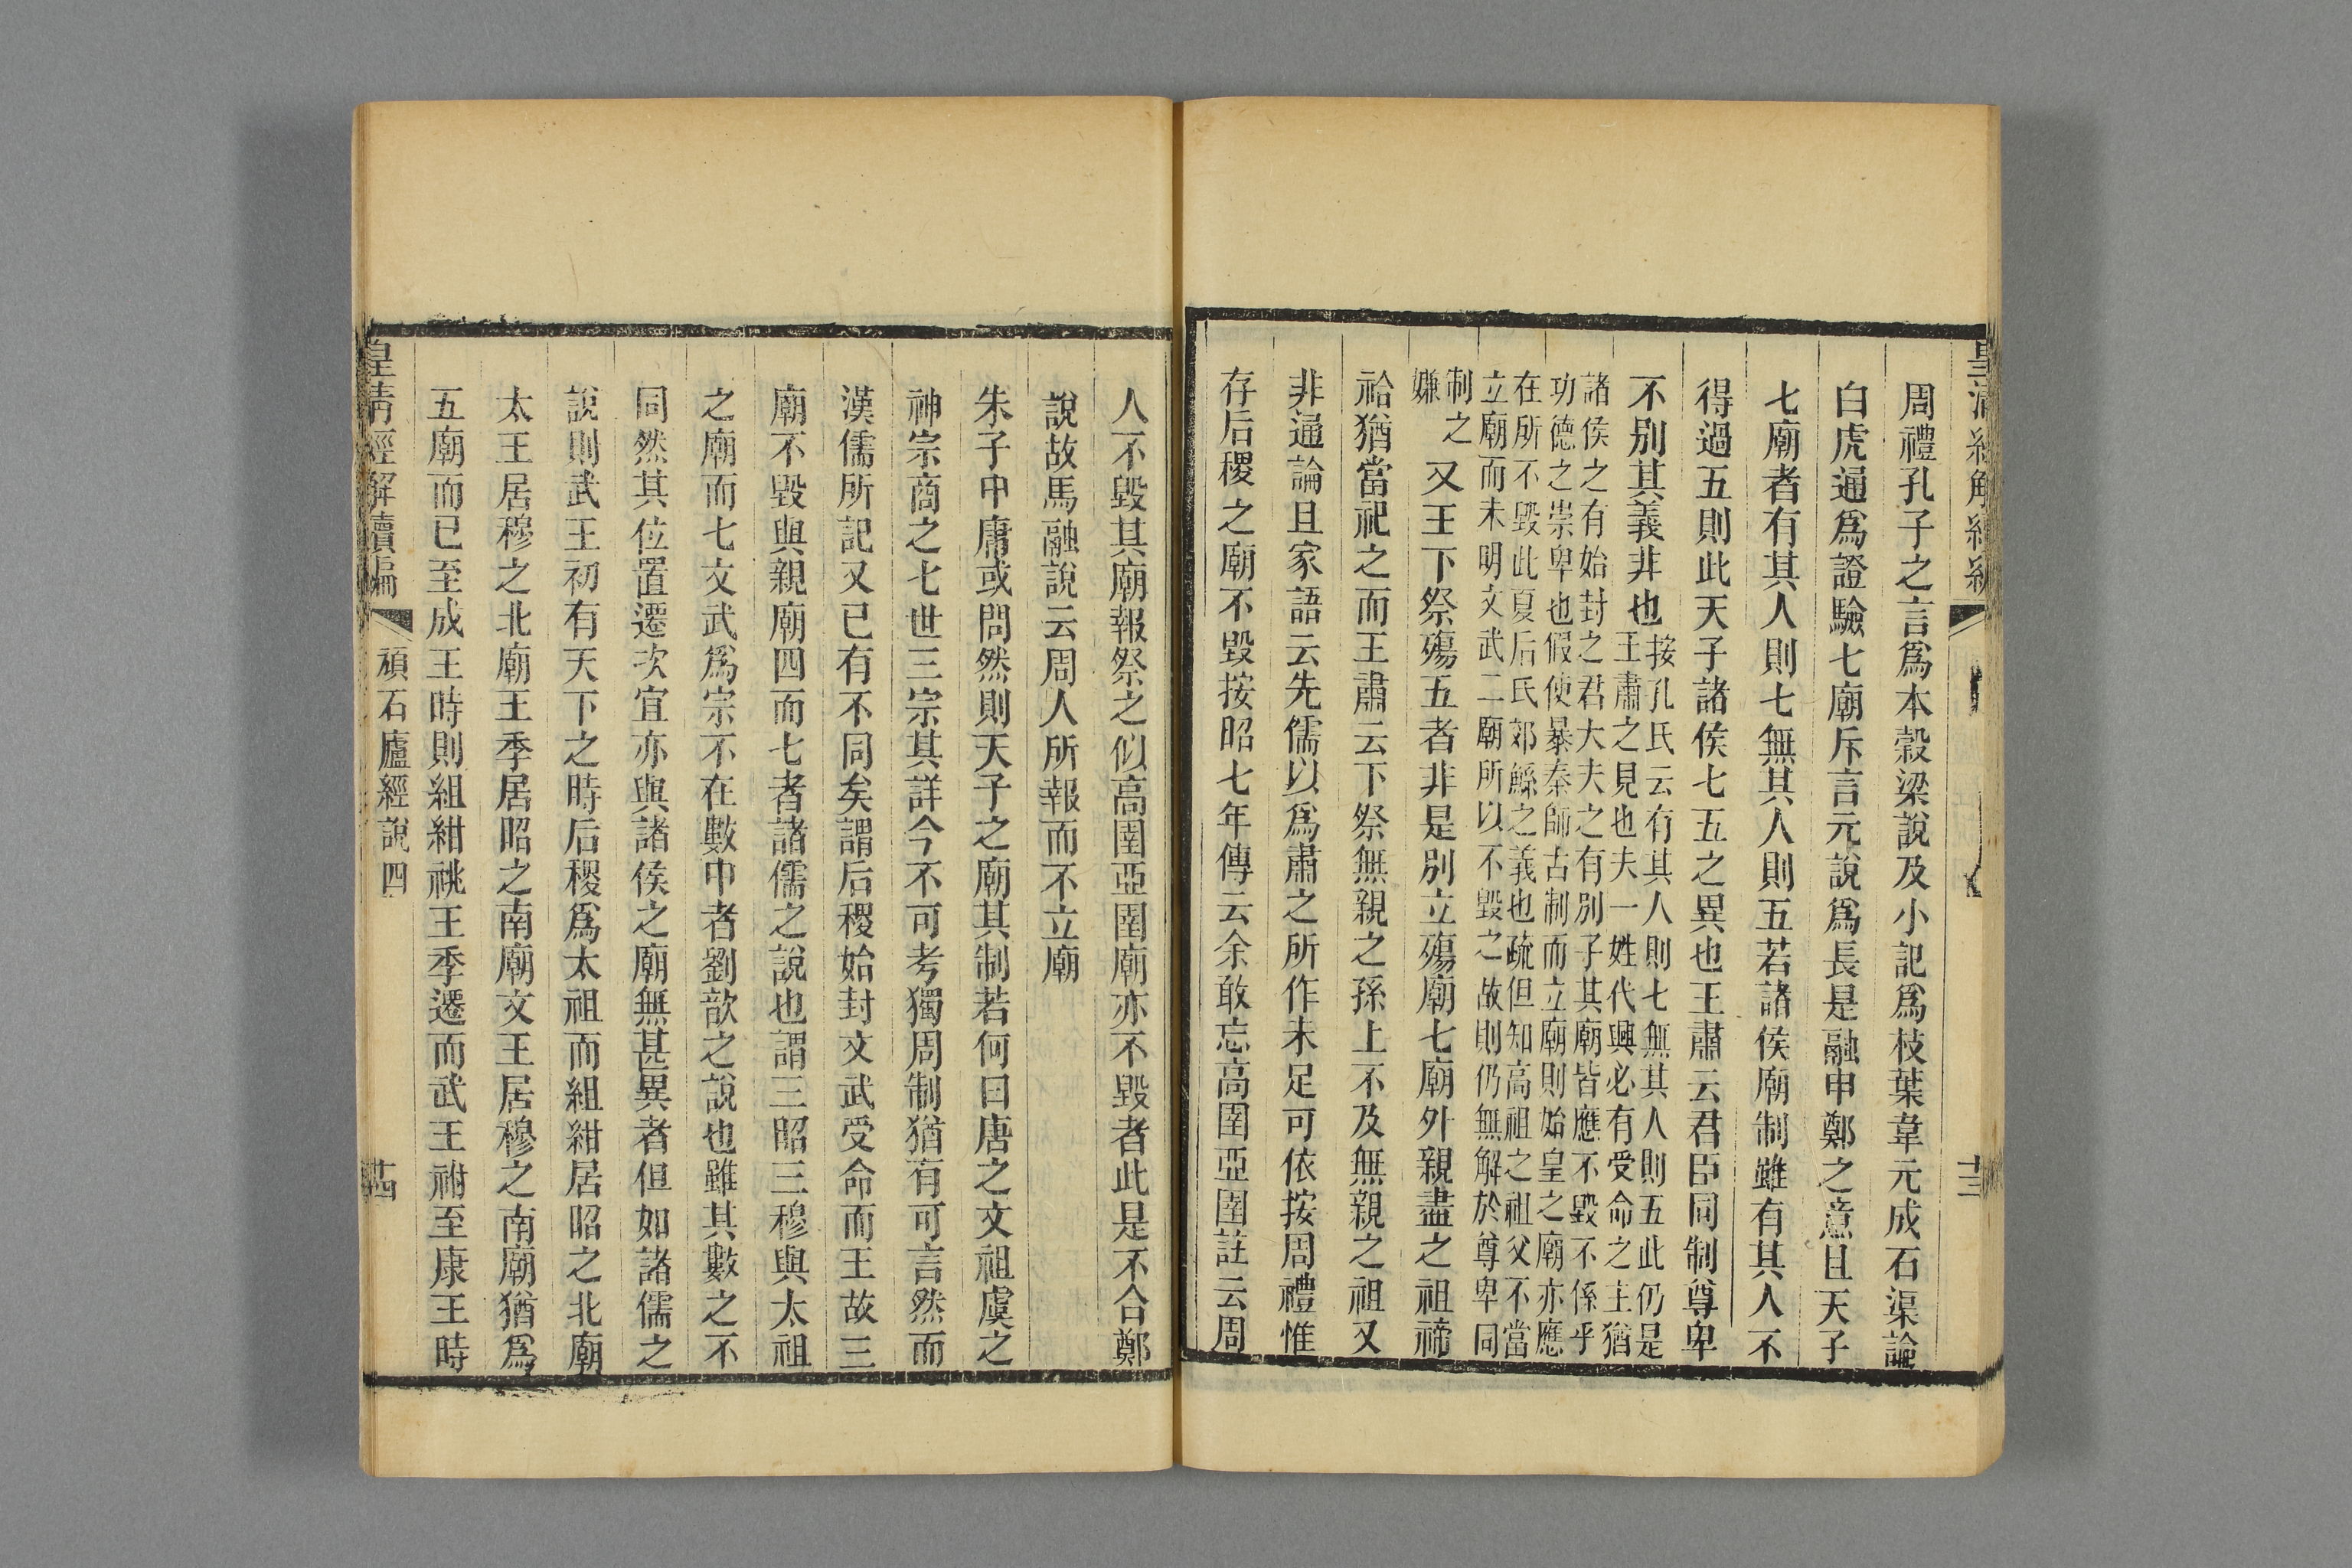 周禮孔子之言爲本穀梁說及小記爲枝葉韋元成石渠論
白虎通爲證驗七廟斥言元說爲長是融申鄭之意且天子
七廟者有其人則七無其人則五若諸侯廟制雖有其人不
得過五則此天子諸侯七五之異也王肅云君臣同制尊卑
不別其義非也
按孔氏云有其人則七無其人則五此仍是
王肅之見也夫一姓代興必有受命之主猶
諸侯之有始封之君大夫之有別子其廟皆應不毀不係乎
功德之崇卑也假使暴秦師古制而立廟則始皇之廟亦應
在所不毀此夏后氏郊鯀之義也疏但知高祖之祖父不當
立廟而未明文武二廟所以不毀之故則仍無解於尊卑同
制之
嫌
又王下祭殤五者非是別立殤廟七廟外親盡之祖禘
祫猶當祀之而王肅云下祭無親之孫上不及無親之祖又
非通論且家語云先儒以爲肅之所作未足可依按周禮惟
存后稷之廟不毀按昭七年傳云余敢忘高圉亞圉註云周
人不毀其廟報祭之似高圉亞圉廟亦不毀者此是不合鄭
說故馬融說云周人所報而不立廟
朱子中庸或問然則天子之廟其制若何曰唐之文祖虞之
神宗商之七世三宗其詳今不可考獨周制猶有可言然而
漢儒所記又已有不同矣謂后稷始封文武受命而王故三
廟不毀與親廟四而七者諸儒之說也謂三昭三穆與太祖
之廟而七文武爲宗不在數中者劉歆之說也雖其數之不
同然其位置遷次宜亦與諸侯之廟無甚異者但如諸儒之
說則武王初有天下之時后稷爲太祖而組紺居昭之北廟
太王居穆之北廟王季居昭之南廟文王居穆之南廟猶爲
五廟而已至成王時則組紺祧王季遷而武王祔至康王時
皇清經解續編
頑石廬經說四